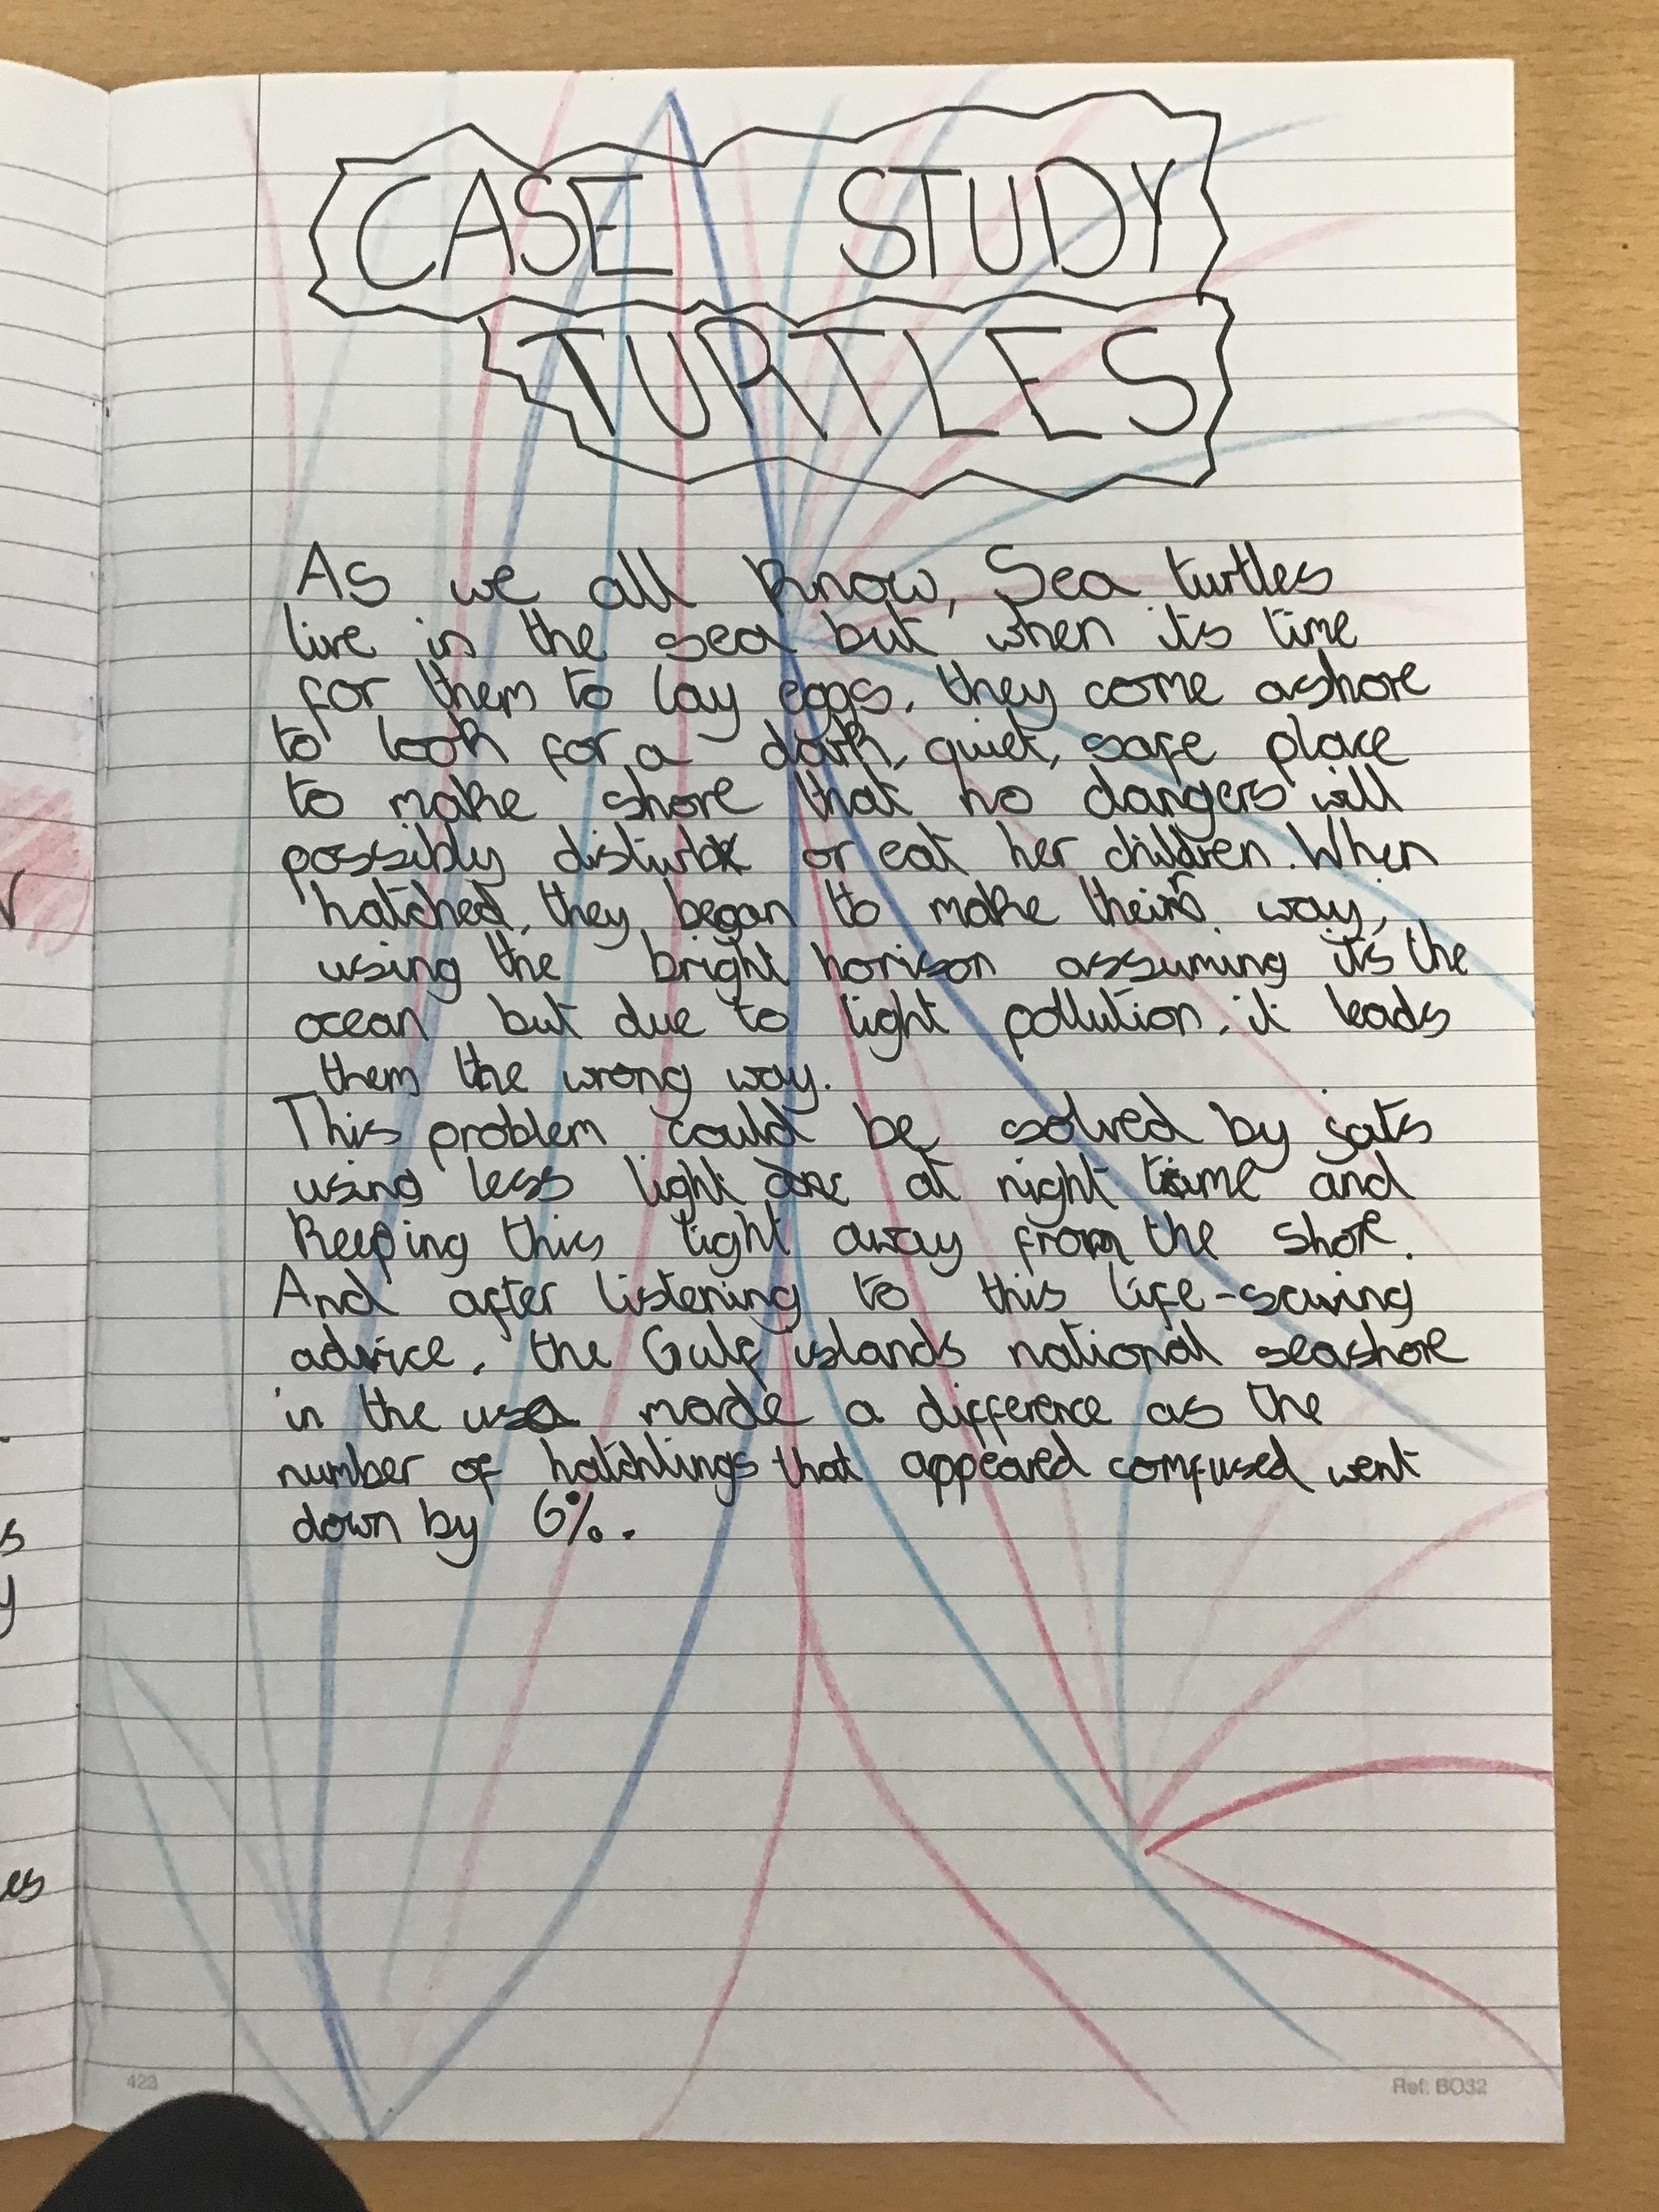 CASE STUDY
TURTLES
As we all know, Sea turtles
live in the sea but when its time
for them to lay eggs, they come ashore
to look for a dark, quiet, safe place
to make shore that no dangers will
possibly disturb or eat her children. When
hatched, they began to make their way,
using the bright horison assuming it's the
ocean but due to light pollution, it leads
them the wrong way.
This problem could be solved by
using less light at night time and
keeping this light away from the shore.
And after listening to this life-saving
advice, the Gulf islands national seashore
in the usa made a difference as the
number of hatchlings that appeared comfused went
down by 6%.
423
Ref: BO32